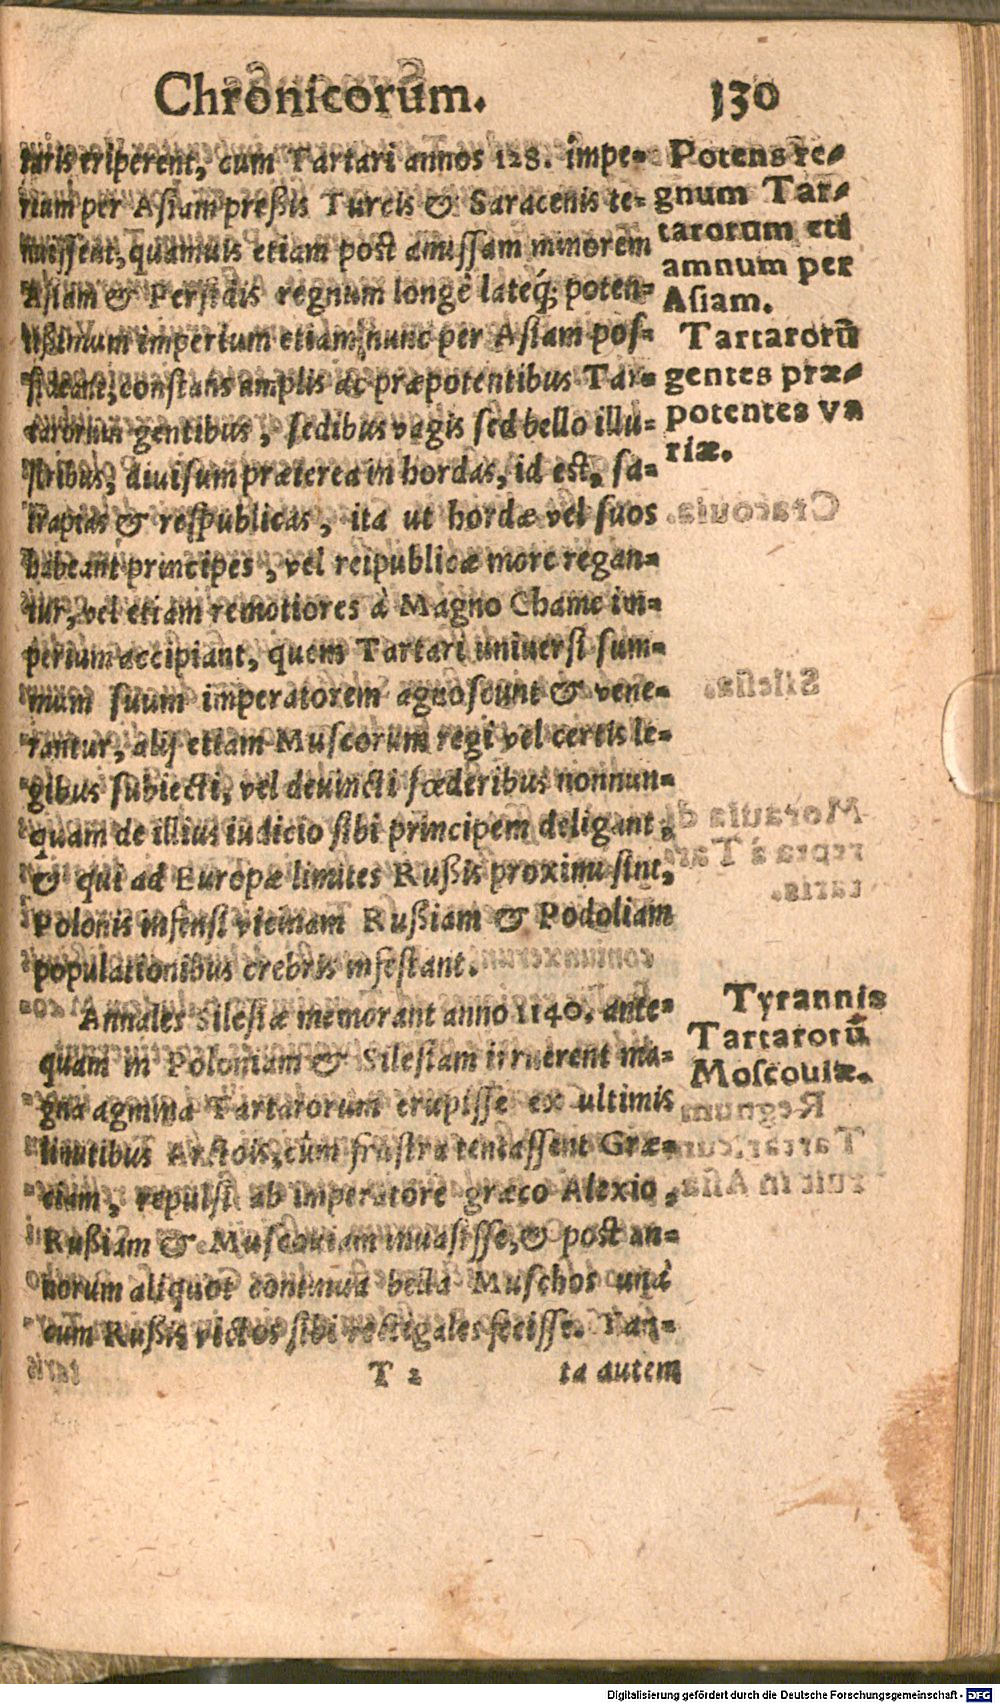 Chronicorum. 130
taris eriperent, cum Tartari annos 128. impe-
rium per Asiam preßis Turcis & Saracenis te-
nuissent, quamuis etiam post amissam minorem
Asiam & Persidis regnum longè lateq́; poten-
tißimum imperium etiam nunc per Asiam pos-
sideant, constans amplis ac præpotentibus Tar-
tarorum gentibus, sedibus vagis sed bello illu-
stribus, diuisum præterea in hordas, id est, sa-
trapias & respublicas, ita ut hordæ vel suos
habeant principes, vel reipublicæ more regan-
tur, vel etiam remotiores à Magno Chame im-
perium accipiant, quem Tartari uniuersi sum-
mum suum imperatorem agnoscunt & vene-
rantur, alij etiam Muscorum regi vel certis le-
gibus subiecti, vel deuincti fœderibus nonnun-
quam de illius iudicio sibi principem deligant,
& qui ad Europæ limites Rußis proximi sint,
Polonis infensi vicinam Rußiam & Podoliam
populationibus crebris infestant.
Annales Silesiæ memorant anno 1140. ante-
quam in Poloniam & Silesiam irruerent ma-
gna agmina Tartarorum erupisse ex ultimis
limitibus Arctois, cùm frustra tentassent Græ-
ciam, repulsi ab imperatore græco Alexio,
Rußiam & Muscouiam inuasisse, & post an-
norum aliquot continua bella Muschos unà
cum Rußis victos sibi vectigales fecisse. Tan-
T 2 ta autem
Potens re-
gnum Tar-
tarorum eti
amnum per
Asiam.
Tartarorū
gentes præ-
potentes va
riæ.
Tyrannis
Tartarorū
Moscouiæ.
Digitalisierung gefördert durch die Deutsche Forschungsgemeinschaft - DFG